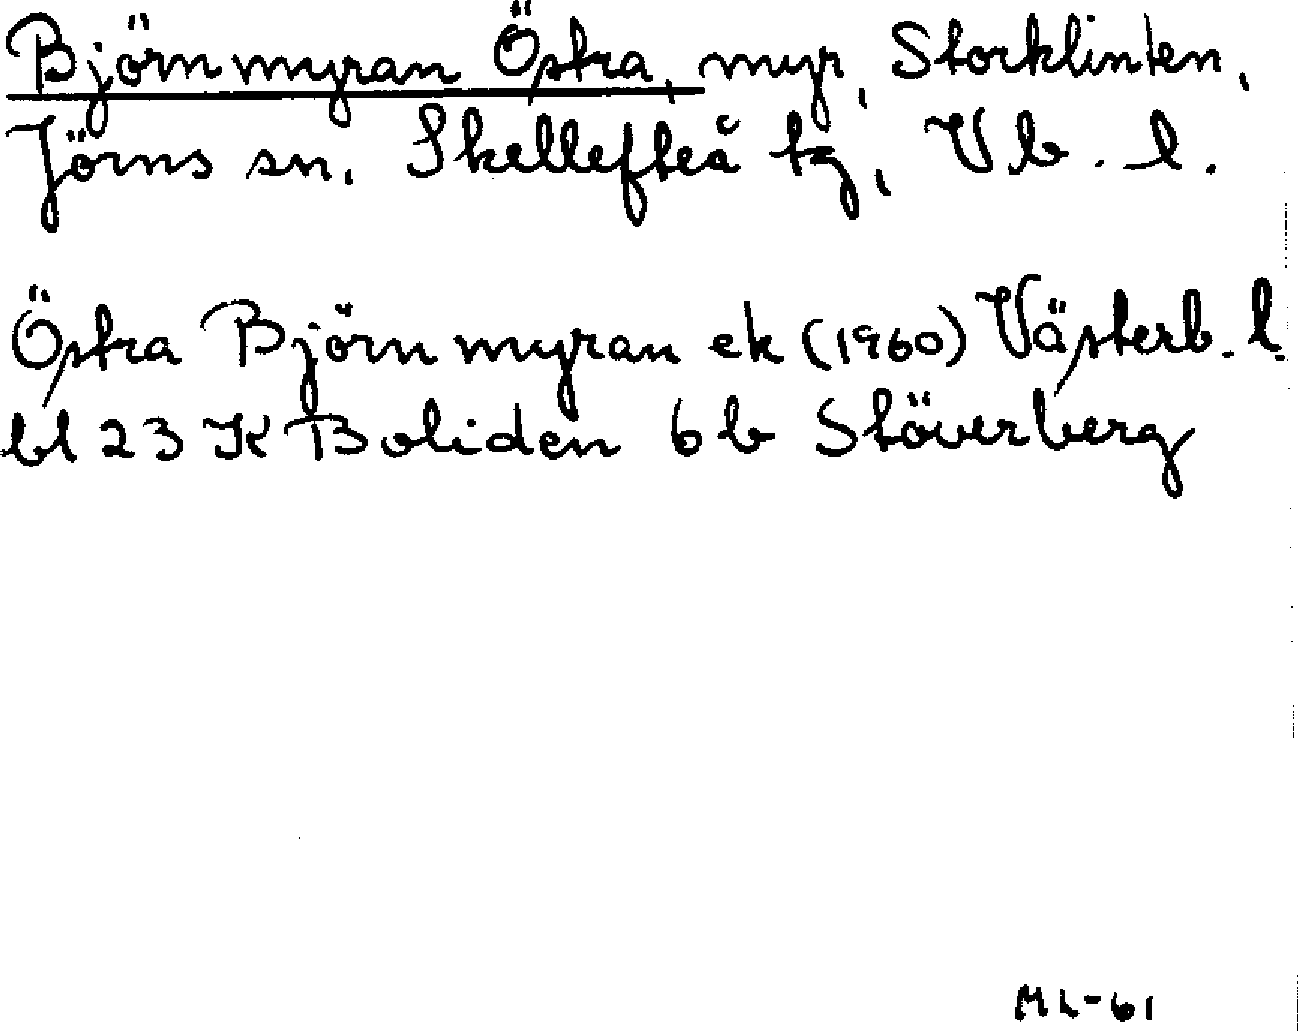 Björnmyran Östra, myr, Storklinten,
Jörns sn, Skellefteå tg, Vb. l.
Östra Björnmyran ek (1960) Västerb. l.
bl 23 K Boliden 6 b Stöverberg
ML-61